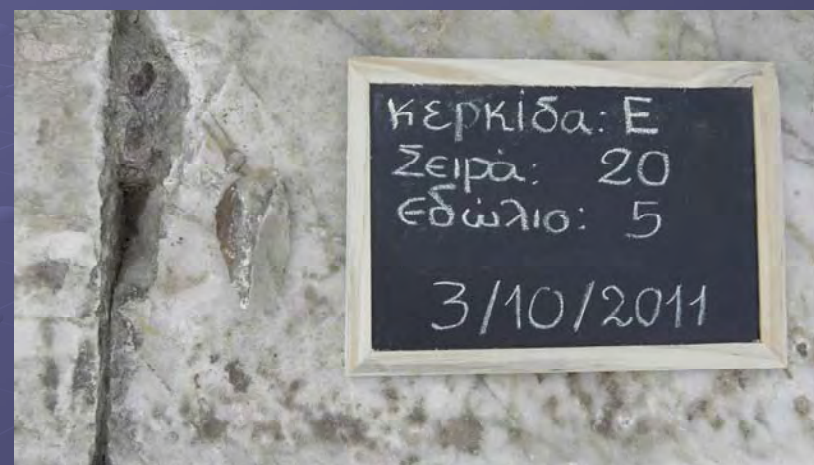 κερκίδα: Ε
Σειρά: 20
Εδώλιο: 5
3/10/2011